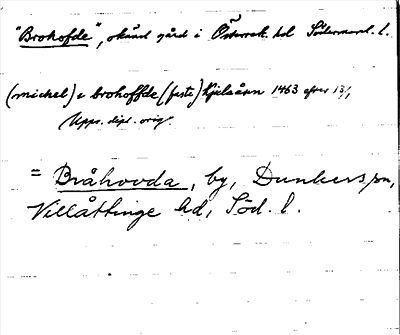 "Brohofde", okänd gård i Österrek. hd Södermanl. l.
(michel) e brohoffde (feste) 1463 efter 13/1
Upps. dipl. orig.
= Bråhovda, by, Dunkers sn,
Villåttinge hd, Söd. l.